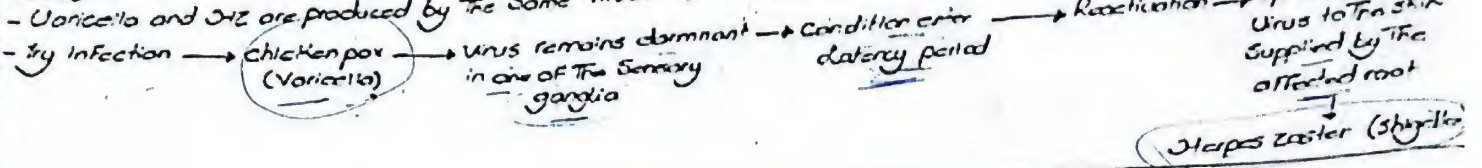 - Varicella and HZ are produced by the same
- Iry Infection → chickenpox (Varicella) → virus remains dormnant in one of the Sensory ganglia → Condition enter latency period → Reactivation →
virus to the skin
supplied by the
affected root
↓
Herpes zoster (Shingles